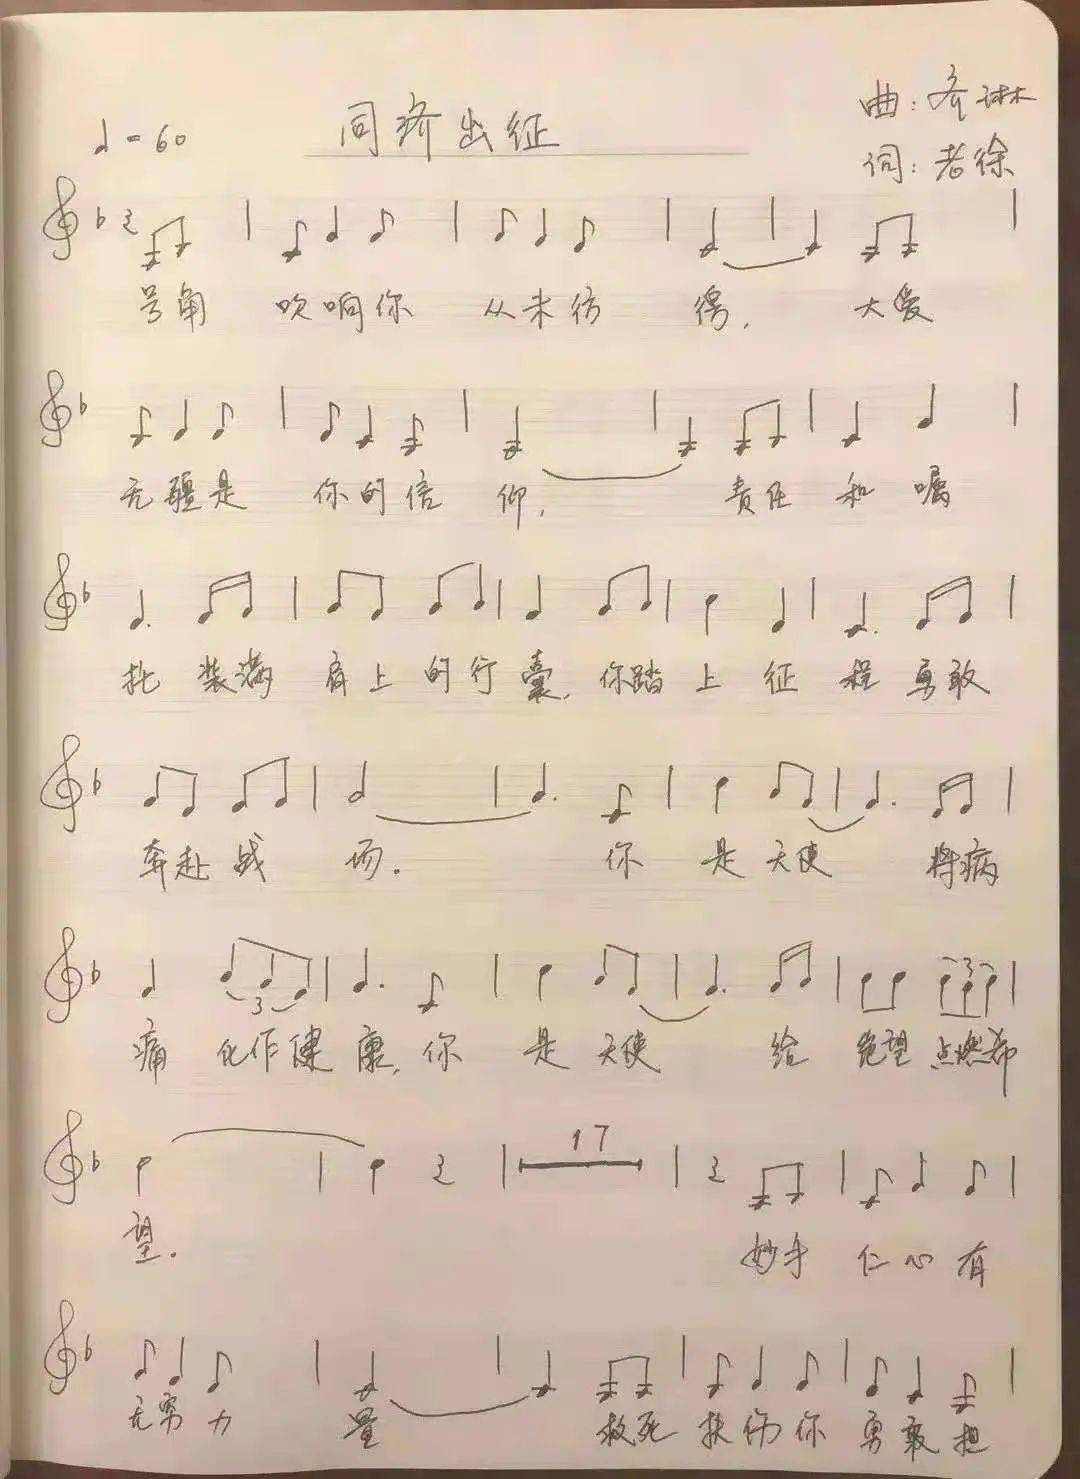 ♩=60 同济出征 曲:齐琳
词:老徐
号角 吹响你 从未彷 徨, 大爱
无疆是 你的信 仰, 责任 和 嘱
托 装满 肩上 的行 囊, 你踏 上 征 程 勇敢
奔赴 战 场. 你 是 天使 将病
3
痛 化作健 康, 你 是 天使 给 绝望 点燃希
3
17
望. 妙手 仁心有
无穷力 量 救死 扶伤你 勇敢担